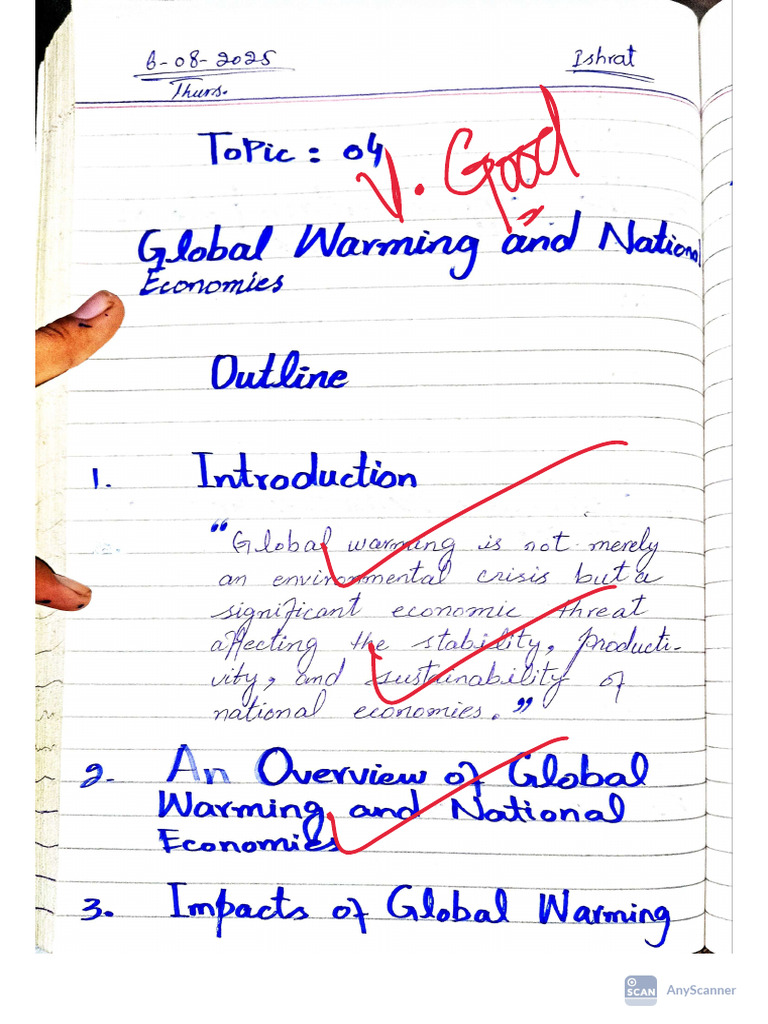 6-08-2025
Ishrat
Thurs.
Topic : 04
V. Good
Global Warming and National
Economies
Outline
1. Introduction
"Global warming is not merely
an environmental crisis but a
significant economic threat
affecting the stability, producti-
vity, and sustainability of
national economies."
2. An Overview of Global
Warming and National
Economies
3. Impacts of Global Warming
SCAN AnyScanner